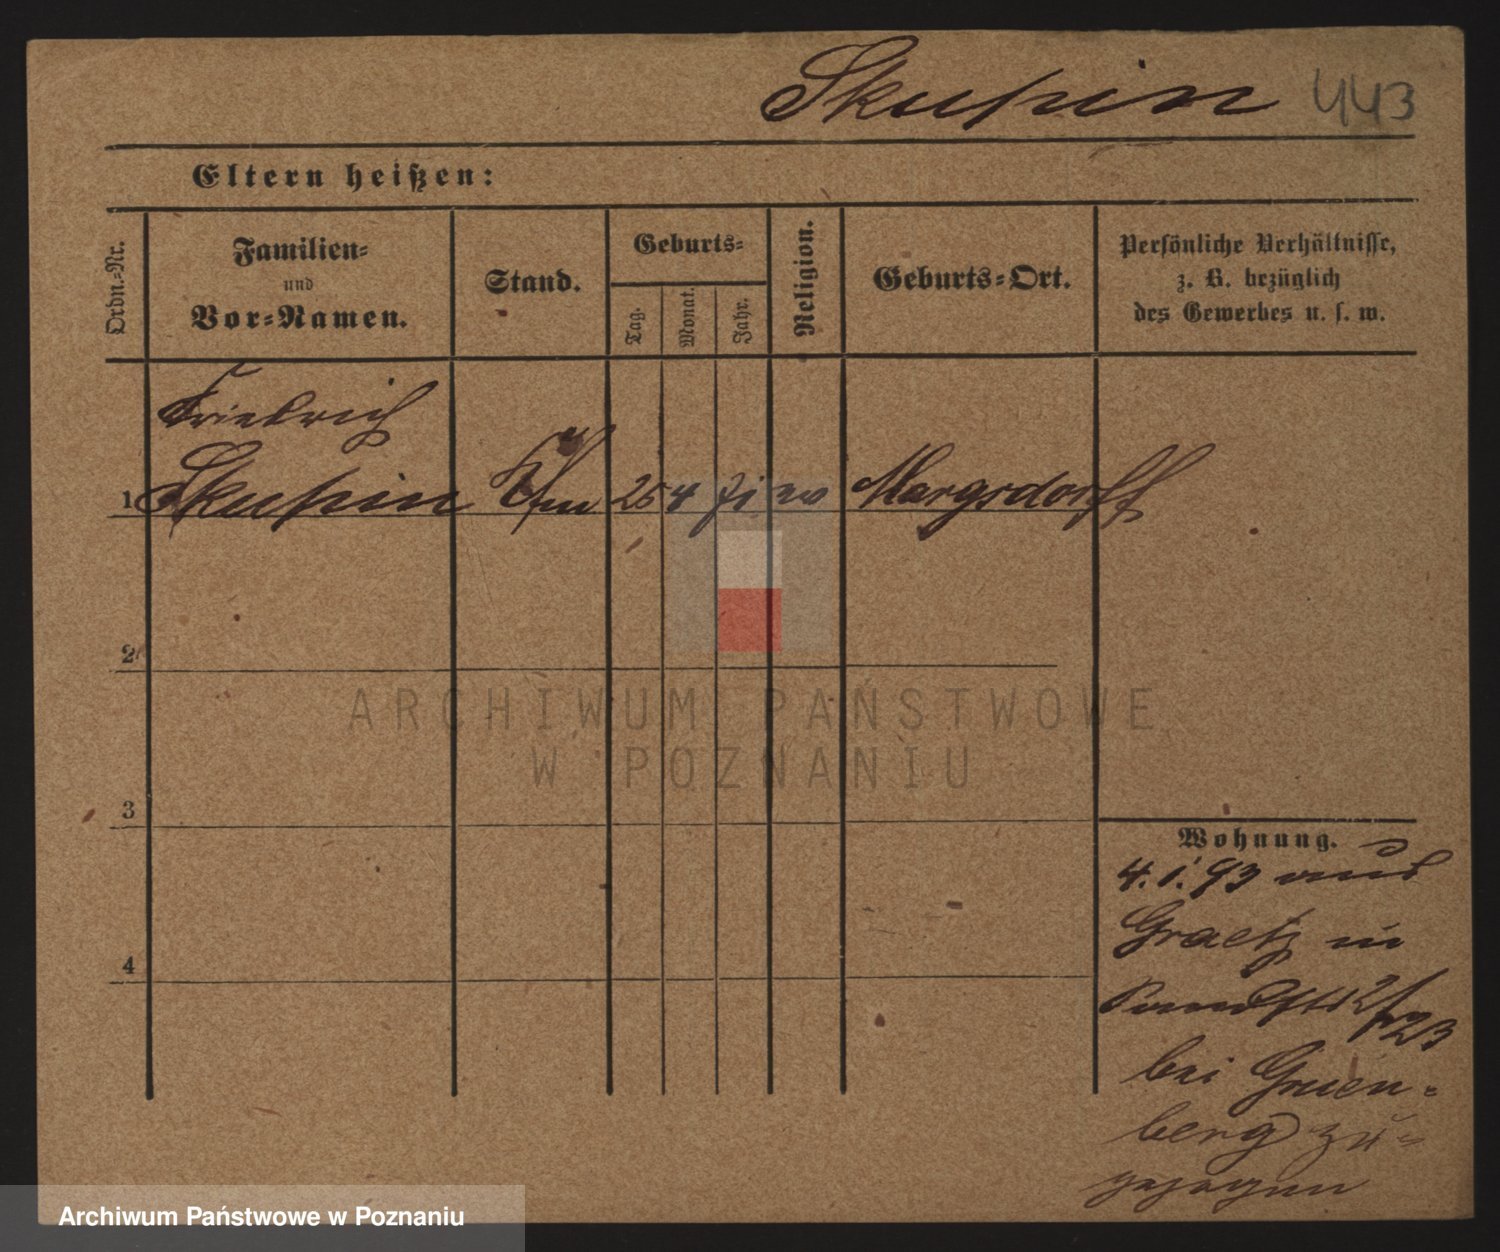 Skupin 443
Eltern heißen:
Ordn.=Nr.
Familien=
und
Vor=Namen.
Stand.
Geburts=
Tag.
Monat.
Jahr.
Religion.
Geburts=Ort.
Persönliche Verhältnisse,
z. B. bezüglich
des Gewerbes u. s. w.
Friedrich
1 Skupin 4 71 ev Margsdorff
2
3
4
Wohnung.
4.1.93 aus
Graetz in
bei Gruen=
berg zu=
gezogen
ARCHIWUM PAŃSTWOWE
W POZNANIU
Archiwum Państwowe w Poznaniu